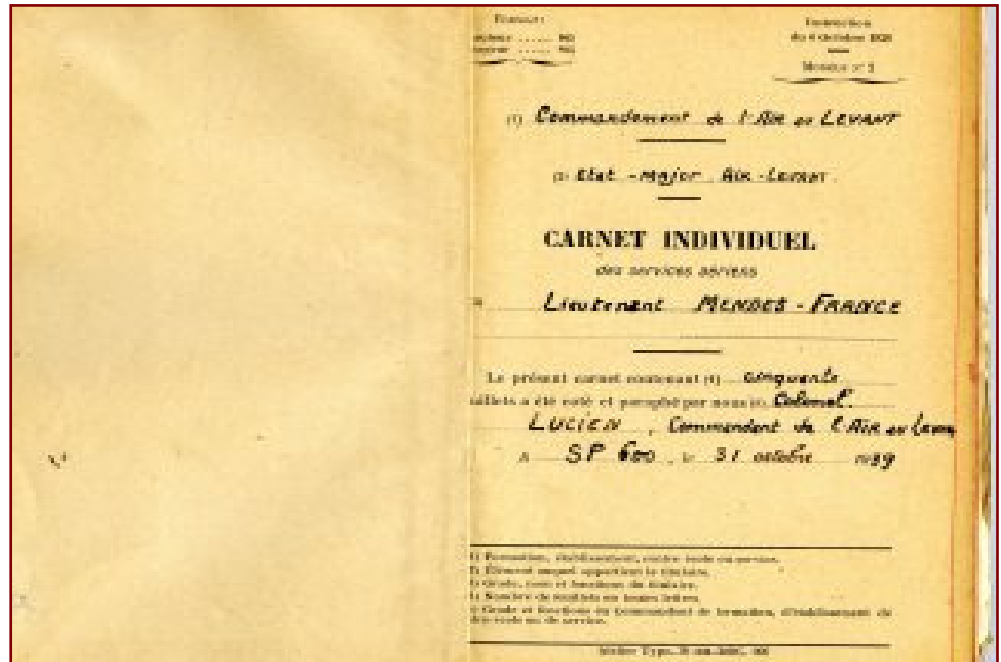 Instruction
du 4 Octobre 1928
Modèle n° 1
(1) Commandement de l'Air au LEVANT
(2) Etat-Major Air-Levant.
CARNET INDIVIDUEL
des services aériens
Lieutenant MENDES-FRANCE
Le présent carnet contenant (4) cinquante
feuillets a été coté et paraphé par nous (5) Colonel.
LUCIEN, Commandant de l'Air au Levant
A SP 600, le 31 octobre 1939
1) Formation, établissement, centre école ou service.
2) Élément auquel appartient le titulaire.
3) Grade, nom et fonctions du titulaire.
4) Nombre de feuillets en toutes lettres.
5) Grade et fonctions du Commandant de formation, d'établissement de
école ou de service.